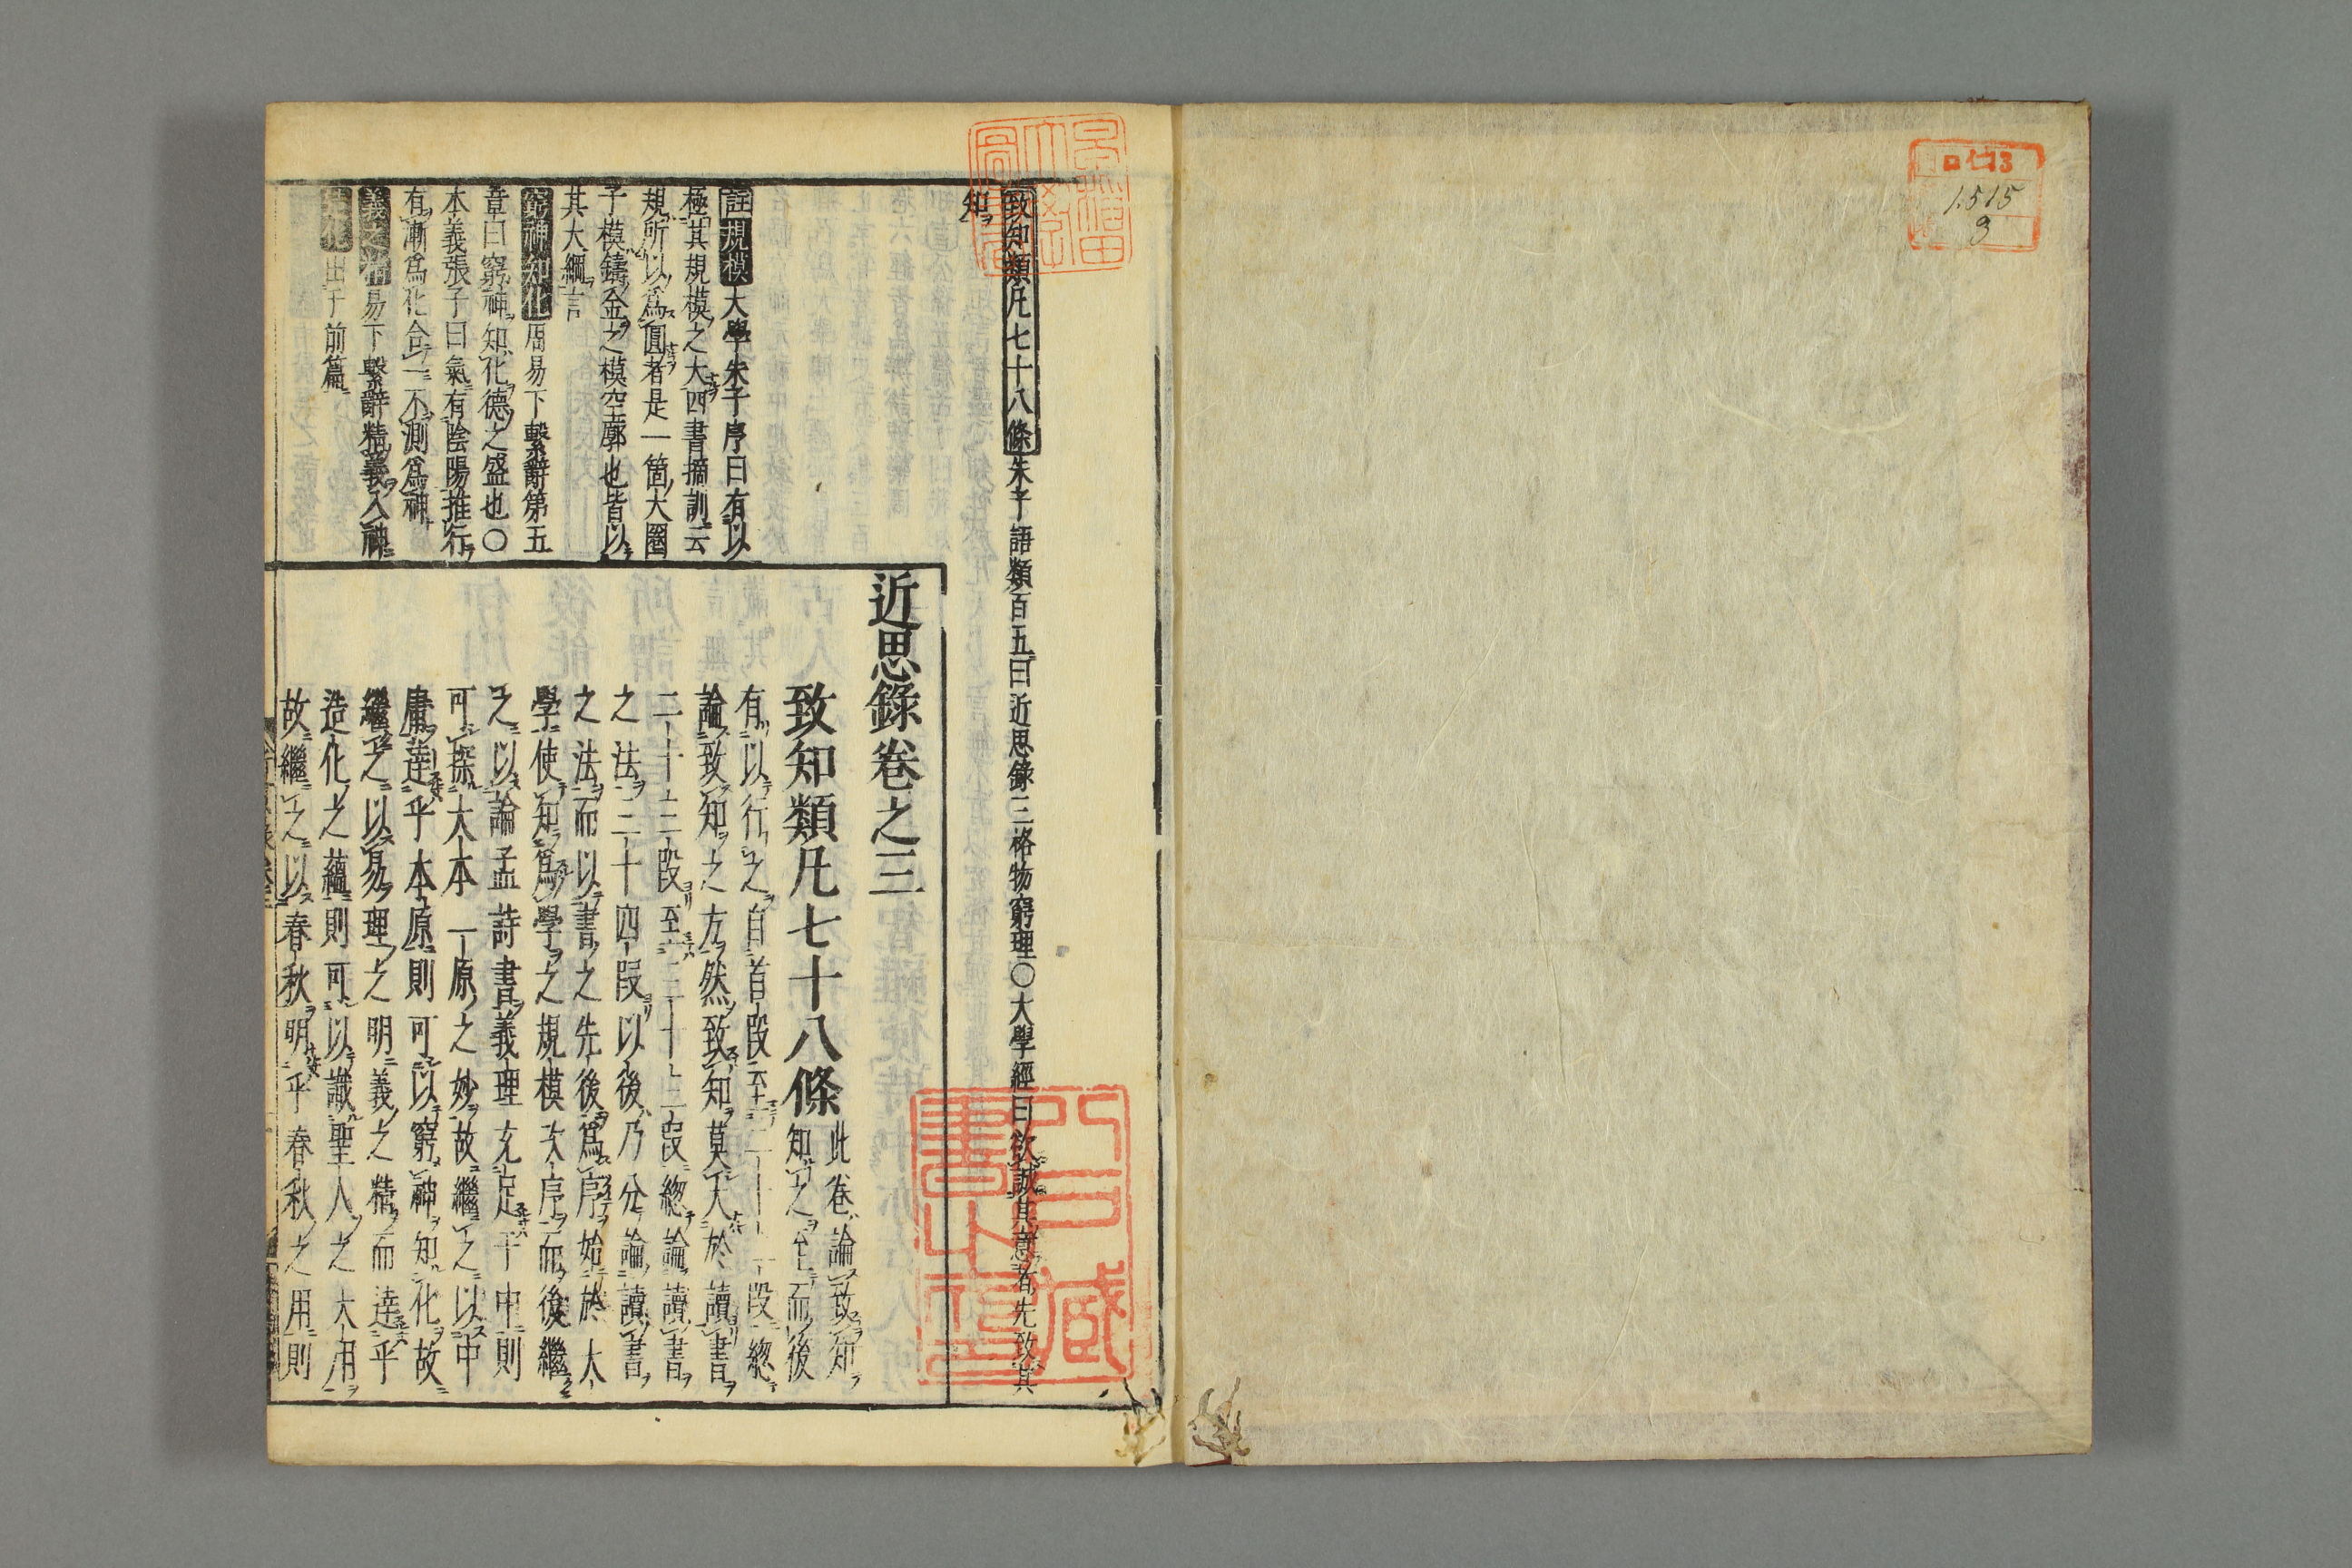 ロ仁13
1.515
3
致知類凡七十八條朱子語類百五曰近思錄三格物窮理〇大學經曰欲誠其意者先致其
知
註規模大學朱子序曰有以
極其規模之大四書摘訓云
規所以爲圓者是一箇大圈
子模鑄金之模空廓也皆以
其大綱言
窮神知化周易下繫辭第五
章曰窮神知化德之盛也〇
本義張子曰氣有陰陽推行
有漸爲化合一不測爲神
義之精易下繫辭精義入神
出于前篇
近思錄卷之三
致知類凡七十八條
此卷論致知
知之至而後
有以行之自首段至二十二段總
論致知之方然致知莫大於讀書
二十三段至三十三段總論讀書
之法三十四段以後乃分論讀書
之法而以書之先後爲序始於大
學使知爲學之規模次序而後繼
之以論孟詩書義理充足于中則
可探大本一原之妙故繼之以中
庸達乎本原則可以窮神知化故
繼之以易理之明義之精而達乎
造化之蘊則可以識聖人之大用
故繼之以春秋明乎春秋之用則